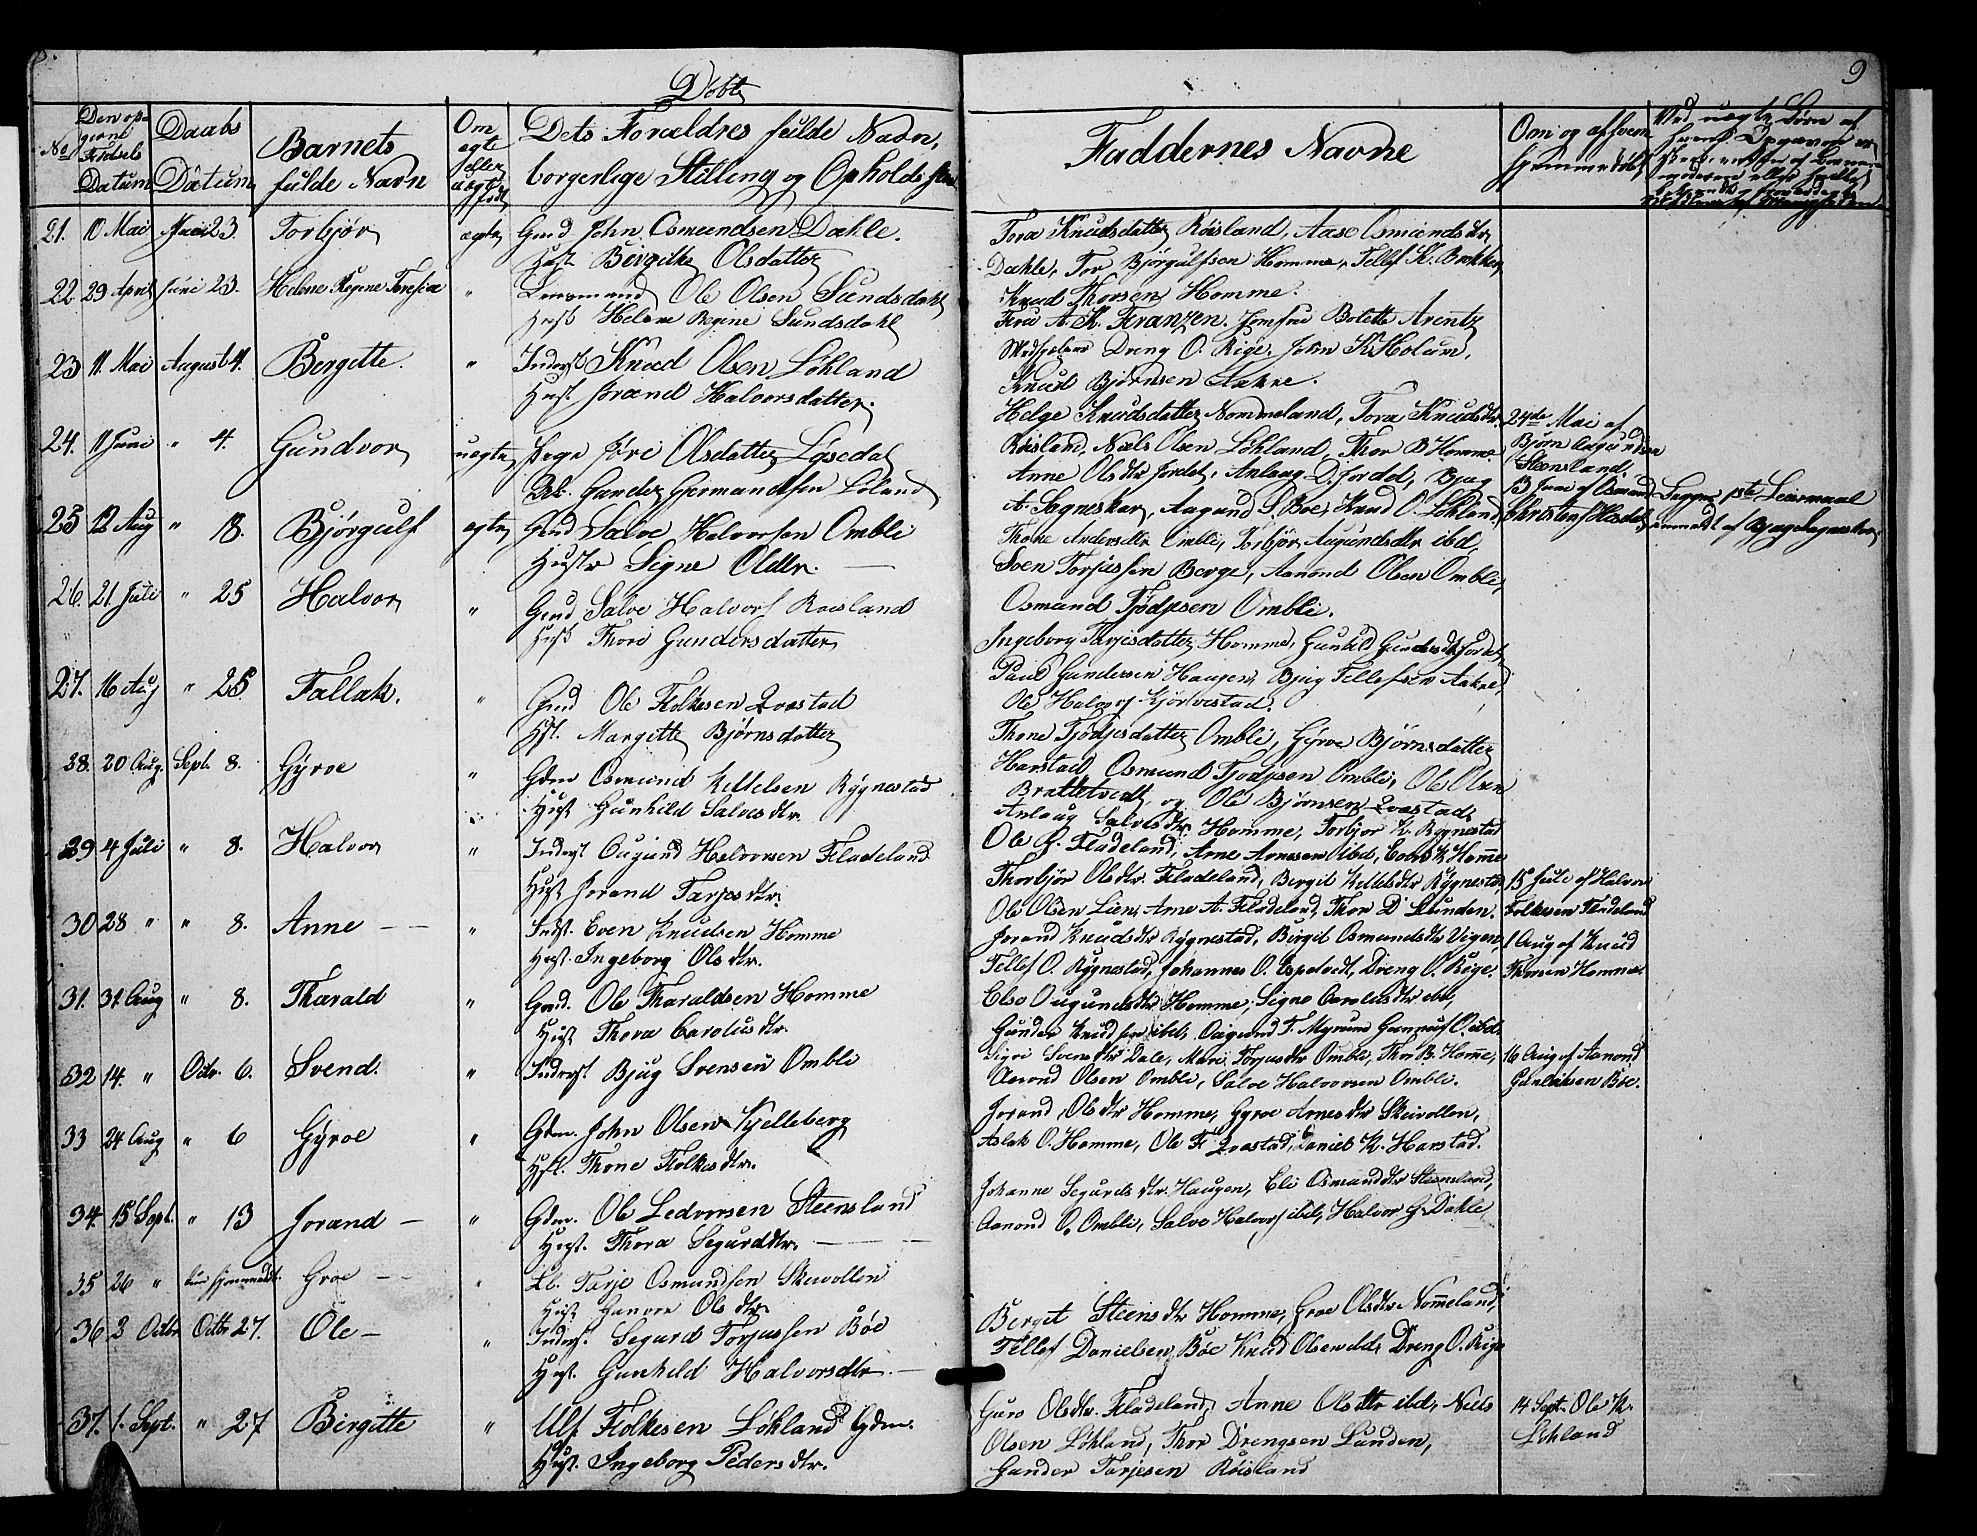 9
Døbte
No
Den opgivne Fødsels Datum
Daabs Datum
Barnets fulde Navn
Om ægte eller uægte født
Dets Forældres fulde Navn, borgerlige Stilling og Opholdssted
Faddernes Navne
Om og af hvem hjemmedøbt
21. 10 Mai Juni 23. Torbjør ægte Gmd John Osmundsen Dahle.
Hust. Bergitte Olsdatter
Tora Knudsdatter Røisland, Aase Osmundsdtr
Dahle, Tor Bjørgulfsen Homme, Tellef K. Brokke,
Knud Thorsen Homme.
22 29 April Juni 23. Helene Regine Teresia " Lensmand Ole Olsen Sundsdahl
Hust. Helene Regine Sundsdahl
Fru A. K. Franzen. Jomfru Bolette Arentz
Dreng O. Rige. John K. Holum,
Knud Bjørnsen Aakre.
23 11 Mai August 4. Bergitte. " Inderst Knud Olsen Løkland
Hust. Jorand Halvorsdatter.
Helge Knudsdatter Nommeland, Tora Knudsdtr
Røisland, Niels Olsen Løkland, Thor B Homme.
24de Mai af
Bjørn Augundsen
Steensland.
24. 11 Juni " 4. Gundvor uægte Pige Siri Olsdatter Løsedal
Gunder Germundsen Løland
Anne Olsdtr Jordet, Anlaug D. Jordet, Bjug
A. Sogneskar, Aagund S. Boe, Knud O. Løkland.
13 Juni af Osmund
Christens
25 12 Aug " 18. Bjørgulf ægte Gmd Salve Halvorsen Ombli
Hustr Signe Oldtr.
Thone Andersdtr Ombli, Torbjør Augundsdtr ibd,
Sven Torjussen Berge, Aanond Olsen Ombli,
Osmund Tjødjsen Ombli.
26. 21. Juli " 25 Halvor " Gmd Salve Halvors Røisland
Hust Thore Gundersdatter
Ingeborg Tarjesdatter Homme, Gunild Gundersdtr Jordet,
Paul Gundersen Haugen, Bjug Tellefsen Aakre,
Ole Halvors.
27. 16 Aug " 25 Tallak. " Gmd Ole Folkesen Qvastad
Hst. Margitte Bjørnsdatter
Thone Tjødjesdatter Ombli, Gyroe Bjørnsdatter
Harstad Osmund Tjodjsen Ombli, Ole Olsen
Brattetvedt og Ole Bjørnsen Qvastad
28. 20 Aug. Sept. 8. Gyroe " Gdm Osmund Kittelsen Rygnestad
Hust Gunhild Salvesdtr.
Anlaug Salvesdtr Homme, Torbjor K. Rygnestad
Ole G. Fladeland, Arne Arnesen ibd, Even K Homme
29 4 Juli " 8. Halvor " Inderst Ougund Halvorsen Fladeland
Hust Jorand Tarjesdtr.
Thorbjør Olsdtr. Fladeland, Bergit Kittelsdtr Rygnestad
Ole Olsen Lien, Arne A. Fladeland, Thor D Lunden.
15 Juli af Halvor
Folkesen Fladeland
30 28 " " 8. Anne " Indst. Even Knudsen Homme
Hust. Ingeborg Olsdtr.
Jorand Knudsdtr Rygnestad, Birgit Osmundsdtr Vigen,
Tellef O. Rygnestad, Johannes O. Espetvedt, Dreng O. Rige.
1 Aug af Knud
Thorsen Homme
31. 31. Aug " 8. Tharald " Gmd. Ole Tharaldsen Homme
Hust Thora Carolusdtr.
Else Ougundsdtr Homme, Signe Carolusdtr ibd,
Gunder Knudsen ibd, Ougund T. Myrum O. ibd.
32 14. " Octr. 6. Svend. " Inderst. Bjug Svensen Ombli
Sigri Svensdtr Dale, Mari Torjusdtr Ombli, Thor B. Homme,
Aanond Olsen Ombli, Salve Halvorsen Ombli.
16 Aug af Aanond
Gunleiksen Boe.
33 24 Aug " 6 Gyroe " Gdm. John Olsen Kjelleberg
Hst. Thone Folkesdtr.
Jorand Olsdtr Homme, Gyroe Arnesdtr Skeivollen,
Aslak O. Homme, Ole F. Qvastad, Daniel K. Harstad.
34. 15 Sept. " 13 Jorand " Gdm. Ole Ledvorsen Steensland
Hust. Thora Segurddtr.
Johanne Segurdsdtr. Haugen, Eli Osmunddtr Steensland,
Aanond O. Ombli, Salve Halvors ibid, Halvor G. Dahle
35 26 " kun hjemmedøbt. Groe " Tarje Osmundsen Skeivollen
Hust Gunvor Olsdtr
36. 2 Octbr Octbr 27. Ole " Inderst. Segurd Torjussen Bøe
Hust. Gunhild Halvorsdtr
Bergit Steensdtr Homme, Groe Olsdtr Nomeland,
Tellef Danielsen Bøe Knud Olsen ibd, Dreng O. Rige
37. 1. Sept. " 27 Birgitte " Ulf Folkesen Løkland Gdm.
Hust. Ingeborg Pedersdtr.
Guro Olsdtr. Fladeland, Anne Olsdtr ibd, Niels
Olsen Løkland, Thor Drengsen Lunden,
Gunder Tarjesen Røisland
14 Sept. Ole K.
Løkland